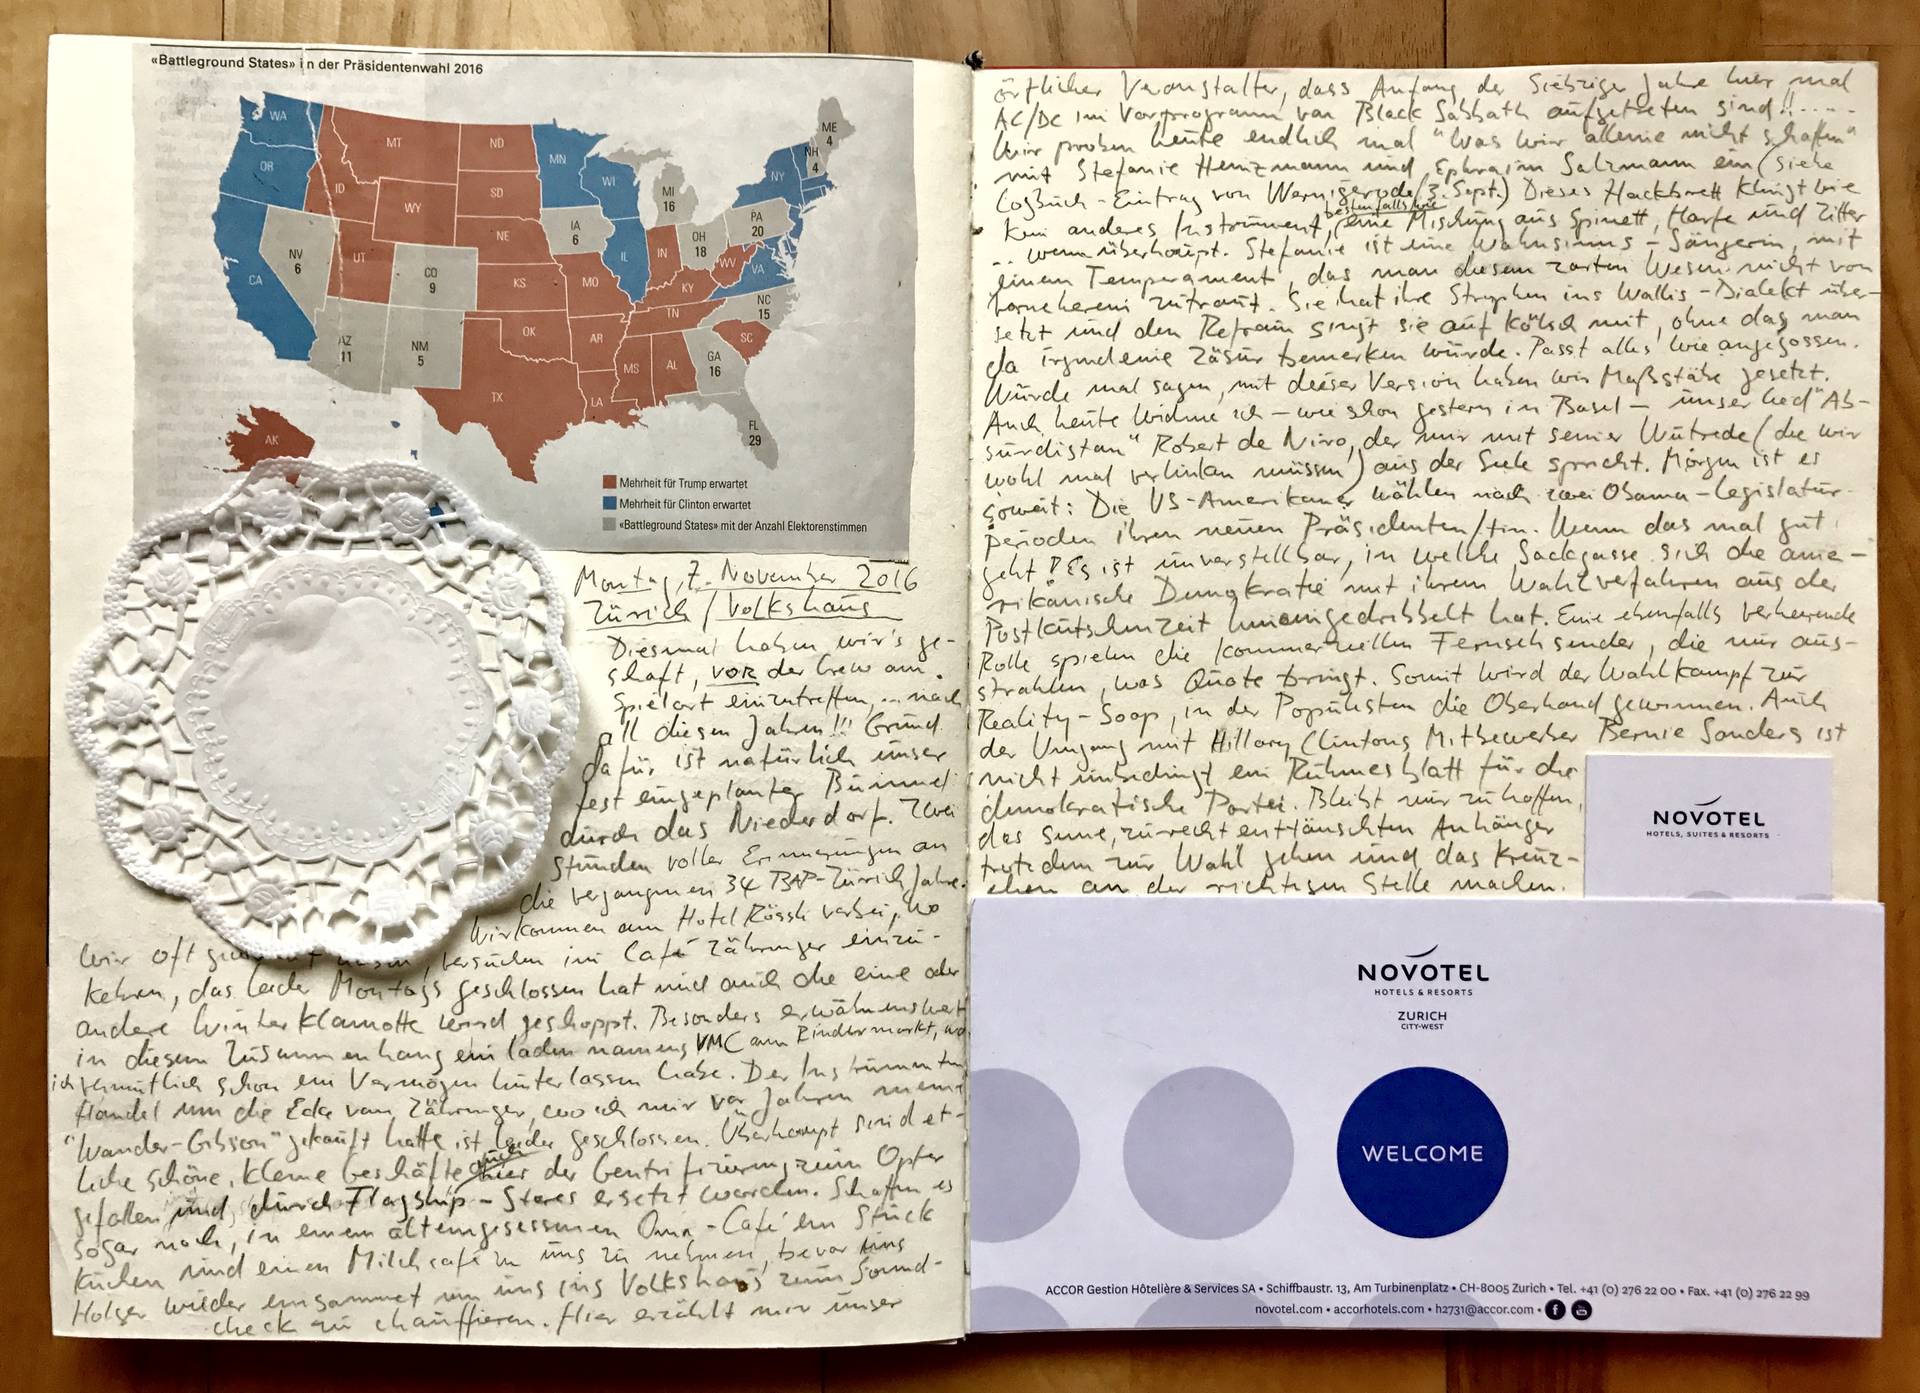 «Battleground States» in der Präsidentenwahl 2016
WA
OR
CA
NV
6
ID
MT
WY
UT
AZ
11
CO
9
NM
5
ND
SD
NE
KS
OK
TX
MN
IA
6
MO
AR
LA
WI
IL
MS
MI
16
IN
OH
18
KY
TN
AL
GA
16
FL
29
SC
NC
15
WV
VA
PA
20
NY
NH
4
ME
4
AK
Mehrheit für Trump erwartet
Mehrheit für Clinton erwartet
«Battleground States» mit der Anzahl Elektorenstimmen
Montag, 7. November 2016
Zürich / Volkshaus
Diesmal haben wir's ge-
schaft, VOR der Crew am
Spielort einzutreffen, ... nach
all diesen Jahren!!! Grund
dafür ist natürlich unser
fest eingeplanter Bummel
durch das Niederdorf. Zwei
Stunden voller Erinnerungen an
die vergangenen 34 BAP-Zürich Jahre.
Wir kommen am Hotel Rössli vorbei, wo
wir oft versuchen im Café Zähringer einzu-
kehren, das leider Montags geschlossen hat und auch die eine oder
andere Winterklamotte wird geshoppt. Besonders erwähnenswert
in diesem Zusammenhang ein Laden namens VMC am Rindermarkt, wo
ich vermutlich schon ein Vermögen hinterlassen habe. Der Instrumenten
Handel um die Ecke vom Zähringer, wo ich mir vor Jahren meine
"Wander-Gibson" gekauft hatte ist leider geschlossen. Überhaupt sind et-
liche schöne, kleine Geschäfte auch hier der Gentrifizierung zum Opfer
gefallen und durch Flagship-Stores ersetzt worden. Schaffen es
sogar noch, in einem alteingesessenen Oma-Café ein Stück
Kuchen und einen Milchcafé zu uns zu nehmen, bevor uns
Holger wieder einsammelt um uns ins Volkshaus zum Sound-
check zu chauffieren. Hier erzählt mir unser
örtlicher Veranstalter, dass Anfang der Siebziger Jahre hier mal
AC/DC im Vorprogramm von Black Sabbath aufgetreten sind!!.....
Wir proben heute endlich mal "Was wir alleine nicht schaffen"
mit Stefanie Heinzmann und Ephraim Salzmann ein (siehe
Logbuch-Eintrag von Wernigerode/3. Sept.) Dieses Hackbrett klingt wie
kein anderes Instrument, bestenfalls wie eine Mischung aus Spinett, Harfe und Zitter
... wenn überhaupt. Stefanie ist eine Wahnsinns-Sängerin, mit
einem Temperament, das man diesem zarten Wesen nicht von
vorneherein zutraut. Sie hat ihre Strophen ins Wallis-Dialekt über-
setzt und den Refrain singt sie auf Kölsch mit, ohne das man
da irgendeine Zäsur bemerken würde. Passt alles wie angegossen.
Würde mal sagen, mit dieser Version haben wir Maßstäbe gesetzt.
Auch heute widme ich - wie schon gestern in Basel - unser Lied "Ab-
surdistan" Robert de Niro, der mir mit seiner Wutrede (die wir
wohl mal verlinken müssen) aus der Seele spricht. Morgen ist es
soweit: Die US-Amerikaner wählen nach zwei Obama-Legislatur-
perioden ihren neuen Präsidenten/tin. Wenn das mal gut
geht! Es ist unvorstellbar, in welche Sackgasse sich die ame-
rikanische Demokratie mit ihrem Wahlverfahren aus der
Postkutschenzeit hineingedribbelt hat. Eine ebenfalls verheerende
Rolle spielen die kommerziellen Fernsehsender, die nur aus-
strahlen, was Quote bringt. Somit wird der Wahlkampf zur
Reality-Soap, in der Populisten die Oberhand gewinnen. Auch
der Umgang mit Hillary Clintons Mitbewerber Bernie Sanders ist
nicht unbedingt ein Ruhmesblatt für die
demokratische Partei. Bleibt nur zu hoffen,
das seine, zurecht enttäuschten Anhänger
trotzdem zur Wahl gehen und das Kreuz-
chen an der richtigen Stelle machen.
NOVOTEL
HOTELS, SUITES & RESORTS
NOVOTEL
HOTELS & RESORTS
ZURICH
CITY-WEST
WELCOME
ACCOR Gestion Hôtelière & Services SA • Schiffbaustr. 13, Am Turbinenplatz • CH-8005 Zurich • Tel. +41 (0) 276 22 00 • Fax. +41 (0) 276 22 99
novotel.com • accorhotels.com • h2731@accor.com •